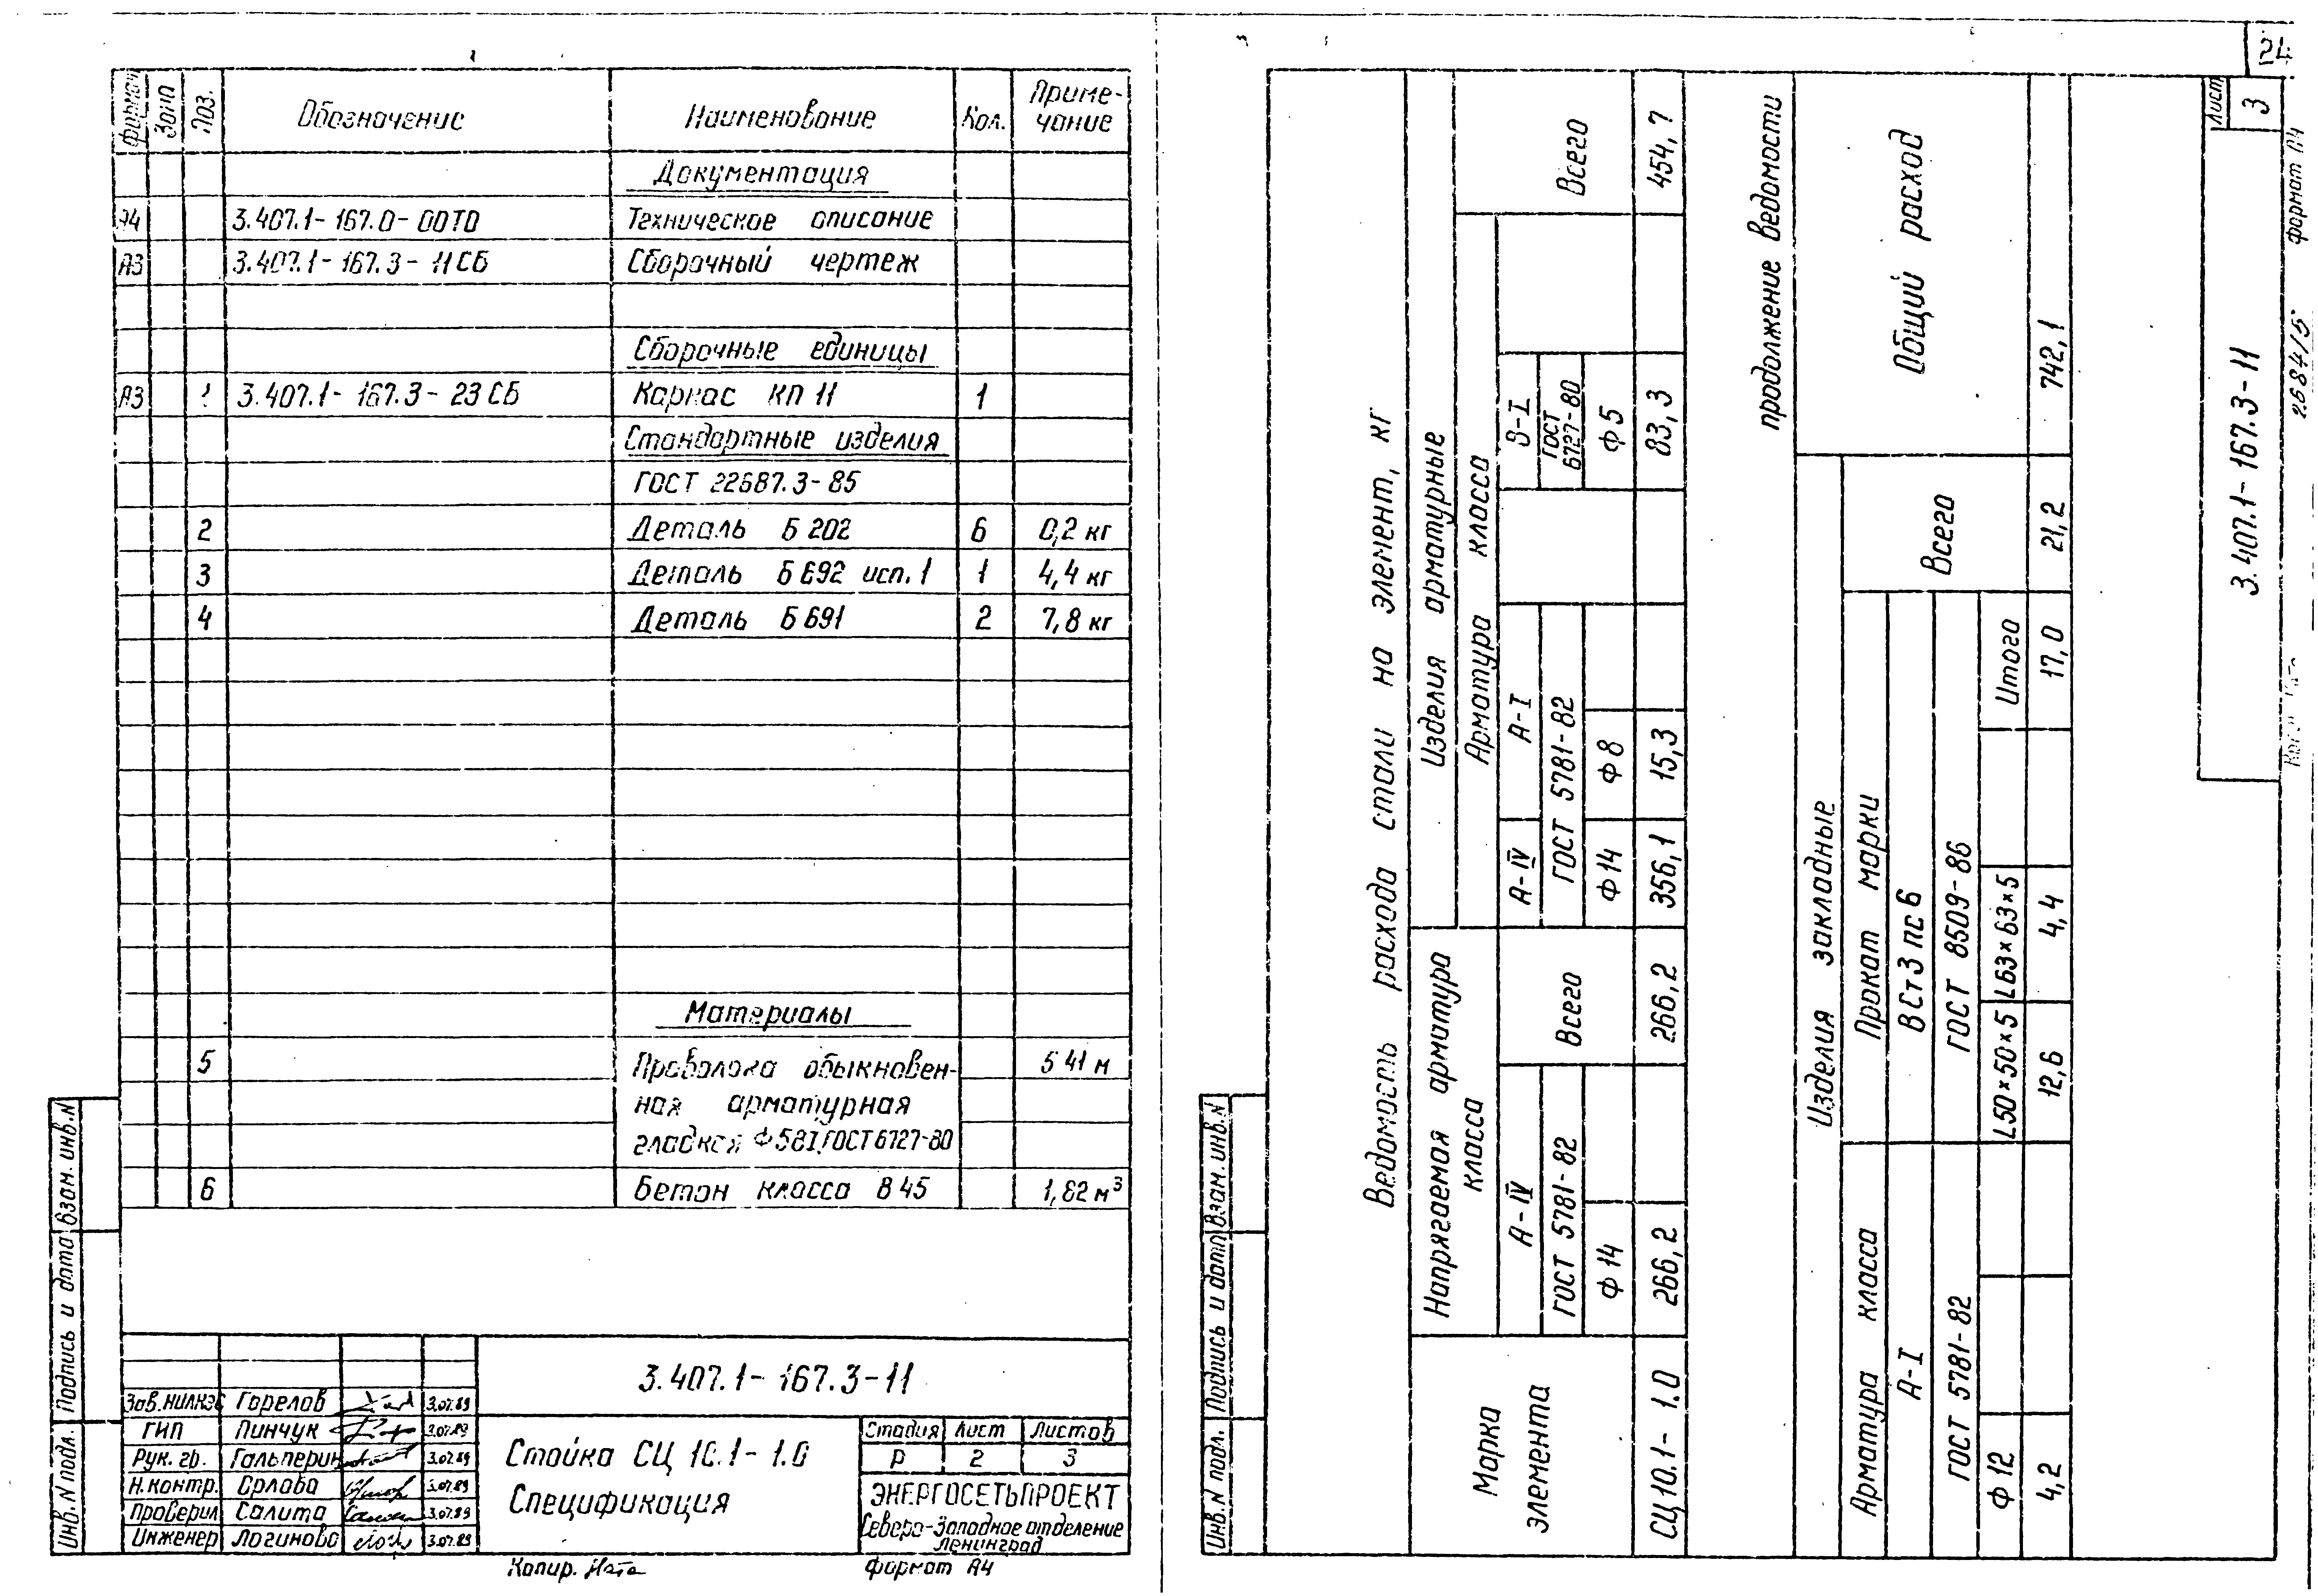 24
Формат Зона Поз. Обозначение Наименование Кол. Приме-
чание
Документация
А4 3.407.1-167.0-00ТО Техническое описание
А3 3.407.1-167.3-11СБ Сборочный чертеж
Сборочные единицы
А3 1 3.407.1-167.3-23СБ Каркас КП 11 1
Стандартные изделия
ГОСТ 22687.3-85
2 Деталь Б 202 6 0,2 кг
3 Деталь Б 692 исп. 1 1 4,4 кг
4 Деталь Б 691 2 7,8 кг
Материалы
5 Проволока обыкновен- 541 м
ная арматурная
гладкая Ф5ВI ГОСТ 6727-80
6 Бетон класса В 45 1,82 м³
Взам. инв. N
Подпись и дата
Инв. N подл.
3.407.1-167.3-11
Зав. НИЛКЭС Горелов 3.07.89
ГИП Пинчук 3.07.89
Рук. гр. Гальперин 3.07.89
Н.контр. Орлова 3.07.89
Проверил Салита 3.07.89
Инженер Логинова 3.07.89
Стойка СЦ 10.1-1.0
Спецификация
Стадия Лист Листов
Р 2 3
ЭНЕРГОСЕТЬПРОЕКТ
Северо-Западное отделение
Ленинград
Копир.
формат А4
Ведомость расхода стали на элемент, кг
Марка
элемента
Напрягаемая арматура
класса
Изделия арматурные
Арматура класса
А-IV Всего А-IV А-I В-I Всего
ГОСТ 5781-82 ГОСТ 5781-82 ГОСТ
6727-80
Ф14 Ф14 Ф8 Ф5
СЦ10.1-1.0 266,2 266,2 356,1 15,3 83,3 454,7
продолжение ведомости
Изделия закладные
Общий расход
Арматура класса Прокат марки Всего
А-I ВСт3пс6
ГОСТ 5781-82 ГОСТ 8509-86
Ф12 L50×50×5 L63×63×5 Итого
4,2 12,6 4,4 17,0 21,2 742,1
Взам. инв. N
Подпись и дата
Инв. N подл.
3.407.1-167.3-11
Лист
3
2684/5
формат А4